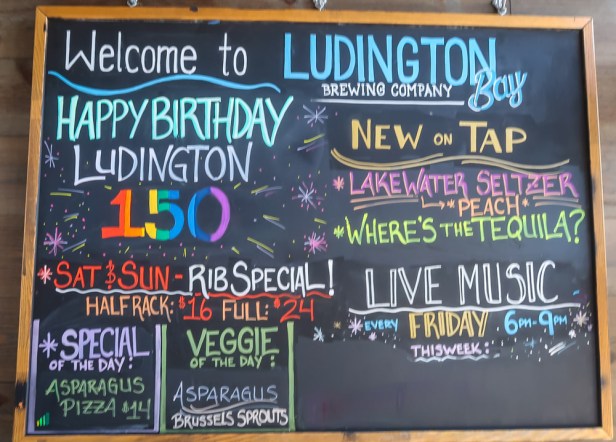 Welcome to
LUDINGTON
Bay
BREWING COMPANY
HAPPY BIRTHDAY
LUDINGTON
150
*SAT & SUN - RIB SPECIAL!
HALF RACK: $16 FULL: $24
*SPECIAL
OF THE DAY:
ASPARAGUS
PIZZA $14
VEGGIE
OF THE DAY:
ASPARAGUS
BRUSSELS SPROUTS
NEW ON TAP
*LAKEWATER SELTZER
*PEACH*
*WHERE'S THE TEQUILA?
LIVE MUSIC
*EVERY FRIDAY 6PM-9PM*
THIS WEEK: